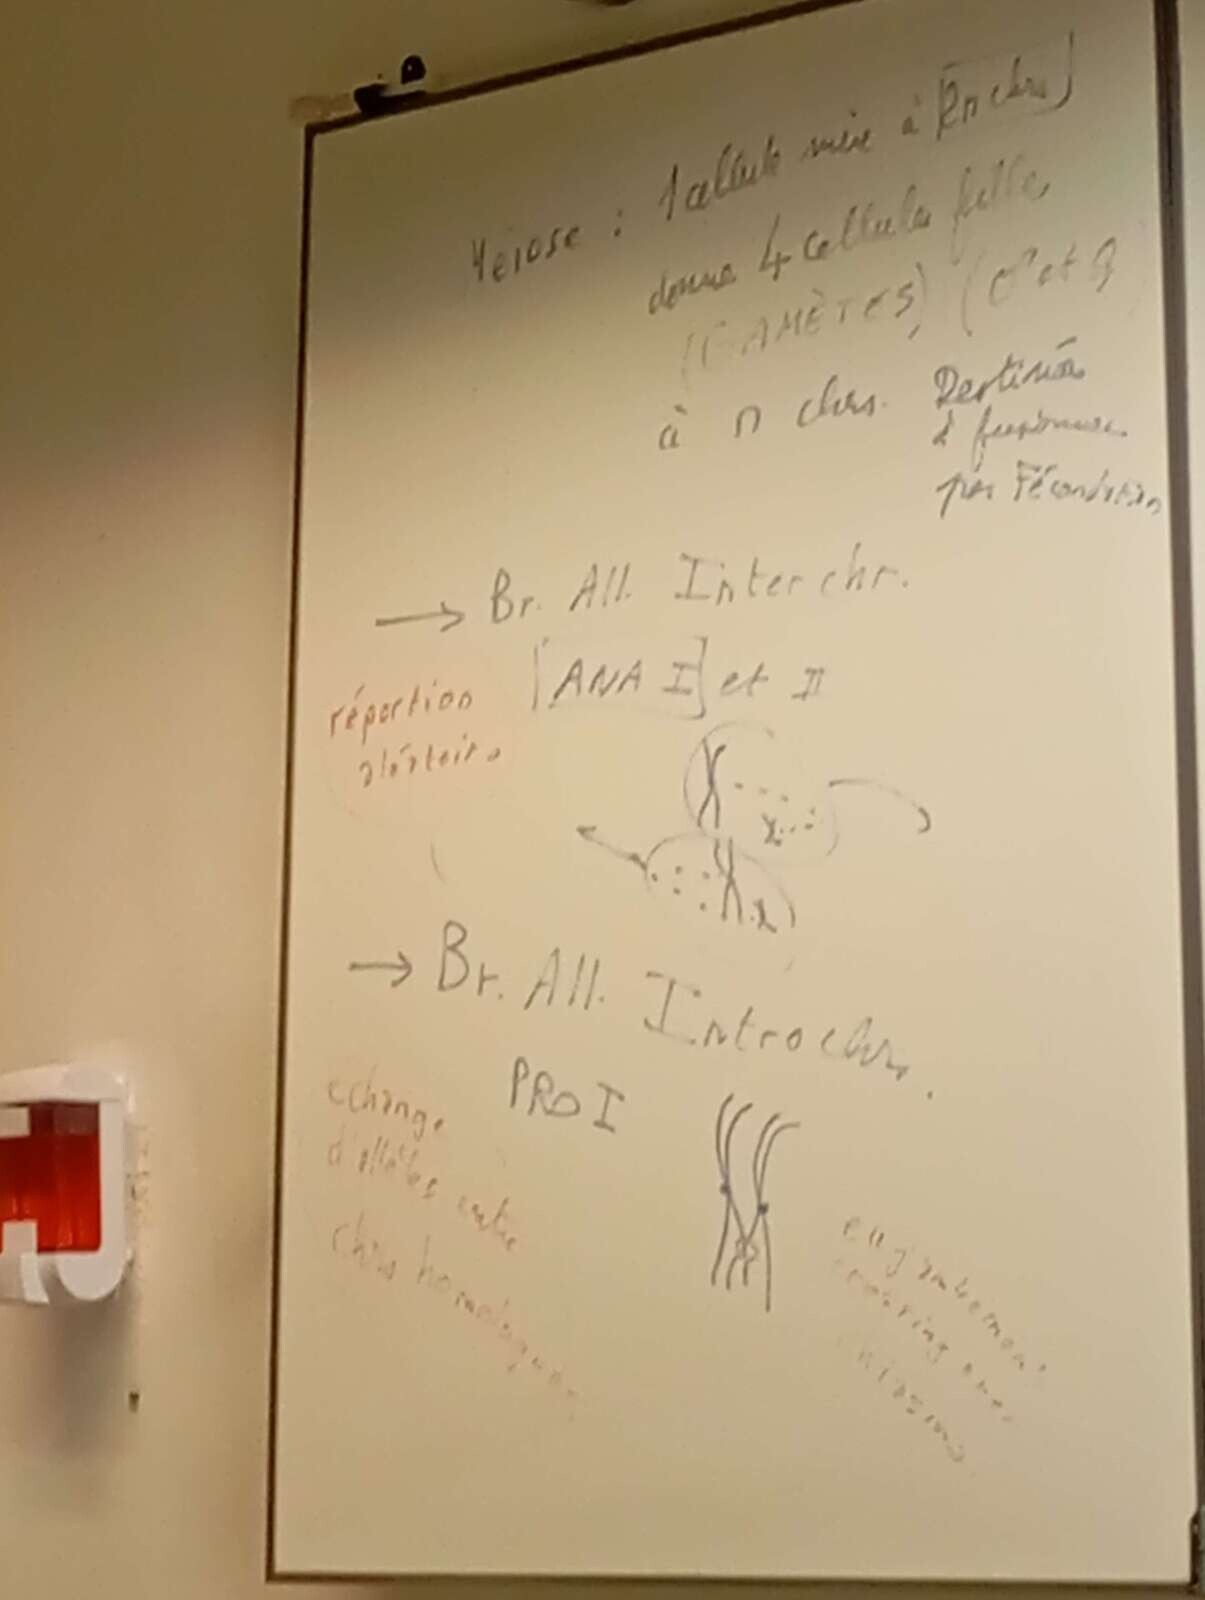 Méiose : 1 cellule mère à 2n chrs
donne 4 cellules filles
(GAMÈTES) (♂ et ♀)
à n chrs. Destinés
à fusionner
par Fécondation
→ Br. All. Interchr.
[ANA I] et II
répartion
aléatoire
→ Br. All. Intrachr.
PRO I
echange
d'allèles entre
chrs homologues
enjambement
crossing over
chiasma